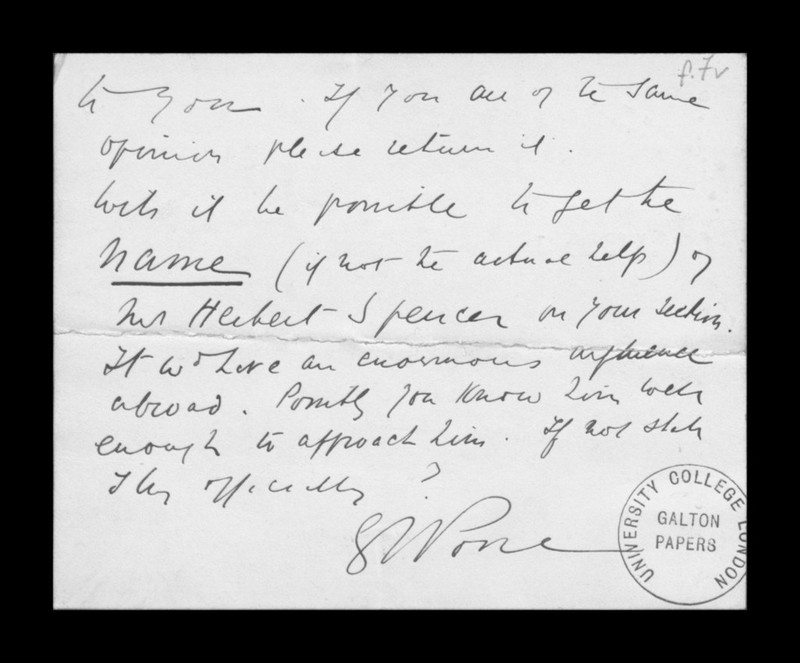 f.7v
to you. If you are of the same
opinion please return it.
Will it be possible to get the
name (if not the actual help) of
Mr Herbert Spencer on your section.
It wd have an enormous influence
abroad. Possibly you know him well
enough to approach him. If not shall
I try officially?
UNIVERSITY COLLEGE LONDON
GALTON
PAPERS